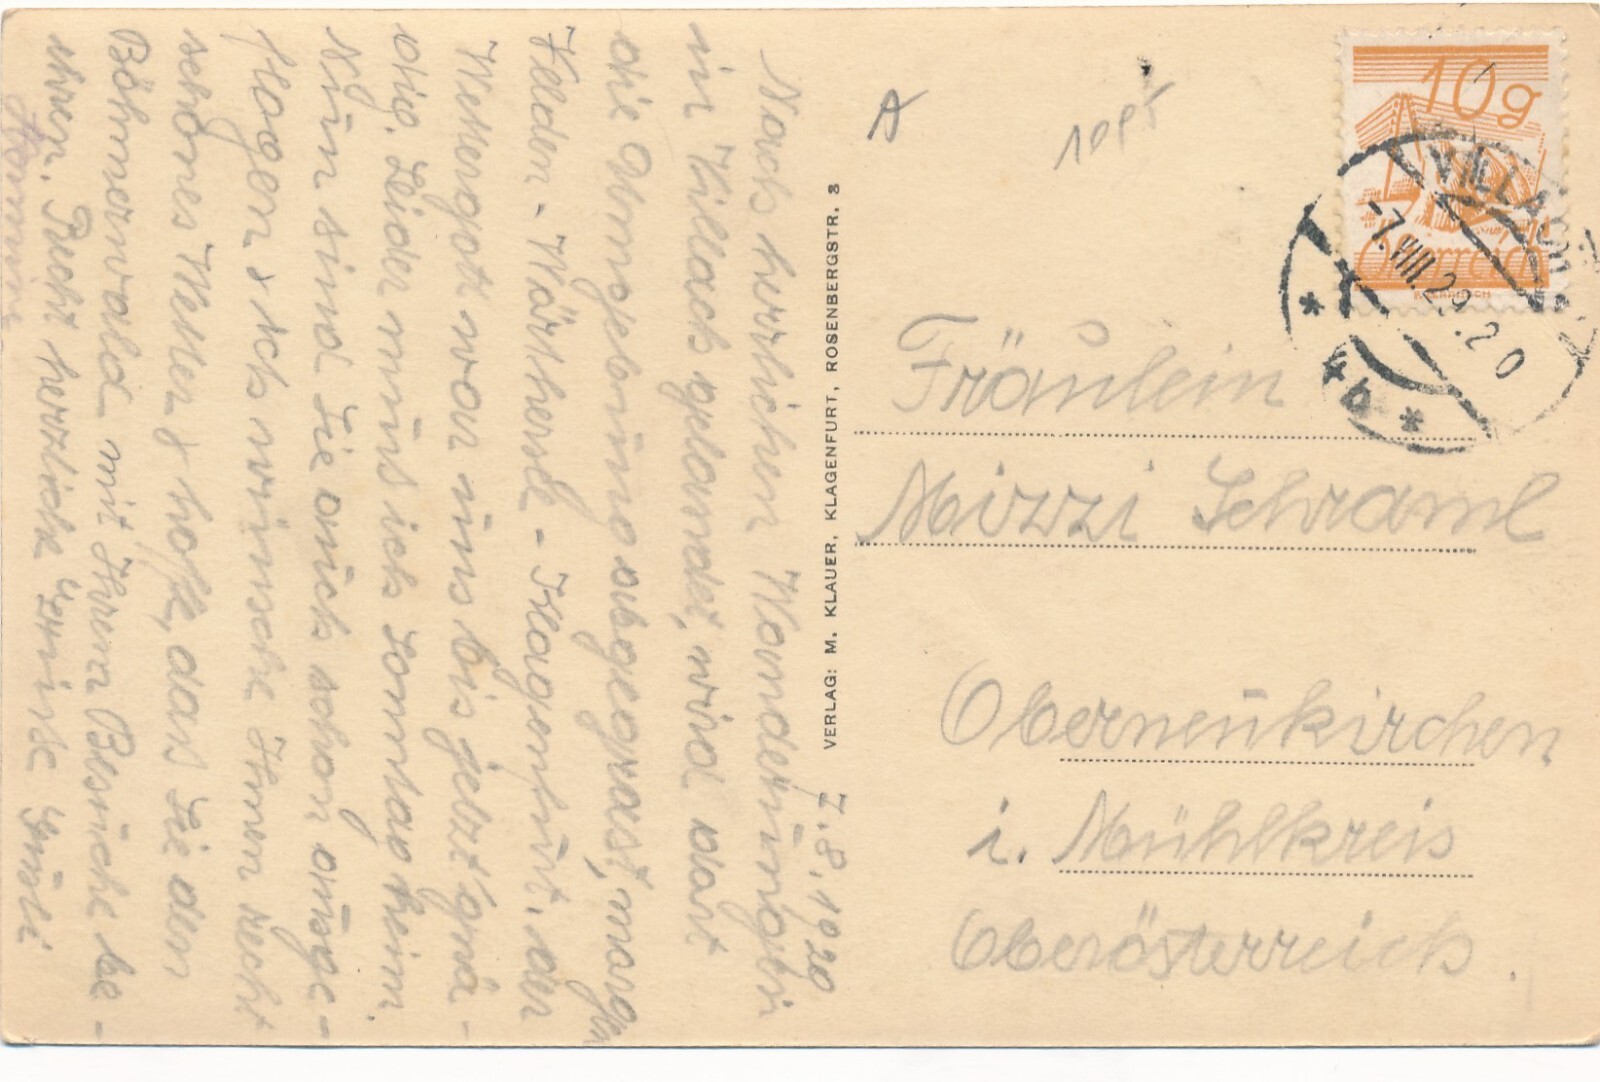 7.8.1929
Nach herrlichen Wanderungen
in Villach gelandet, wird dort
die Umgebung abgegrast, morgen
Velden - Wörthersee - Klagenfurt. der
Wettergott war uns bis jetzt gnä-
dig. Leider muß ich Sonntag heim.
Nun sind Sie auch schon ausge-
flogen & ich wünsche Ihnen recht
schönes Wetter & hoffe, dass Sie den
Böhmerwald mit Ihrem Besuche be-
ehren. Recht herzliche Grüße
VERLAG: M. KLAUER, KLAGENFURT, ROSENBERGSTR. 8
A
10g
Österreich
VILLACH
-7.VIII.29.20
* 4b *
Fräulein
Mizzi Schraml
Oberneukirchen
i. Mühlkreis
Oberösterreich.